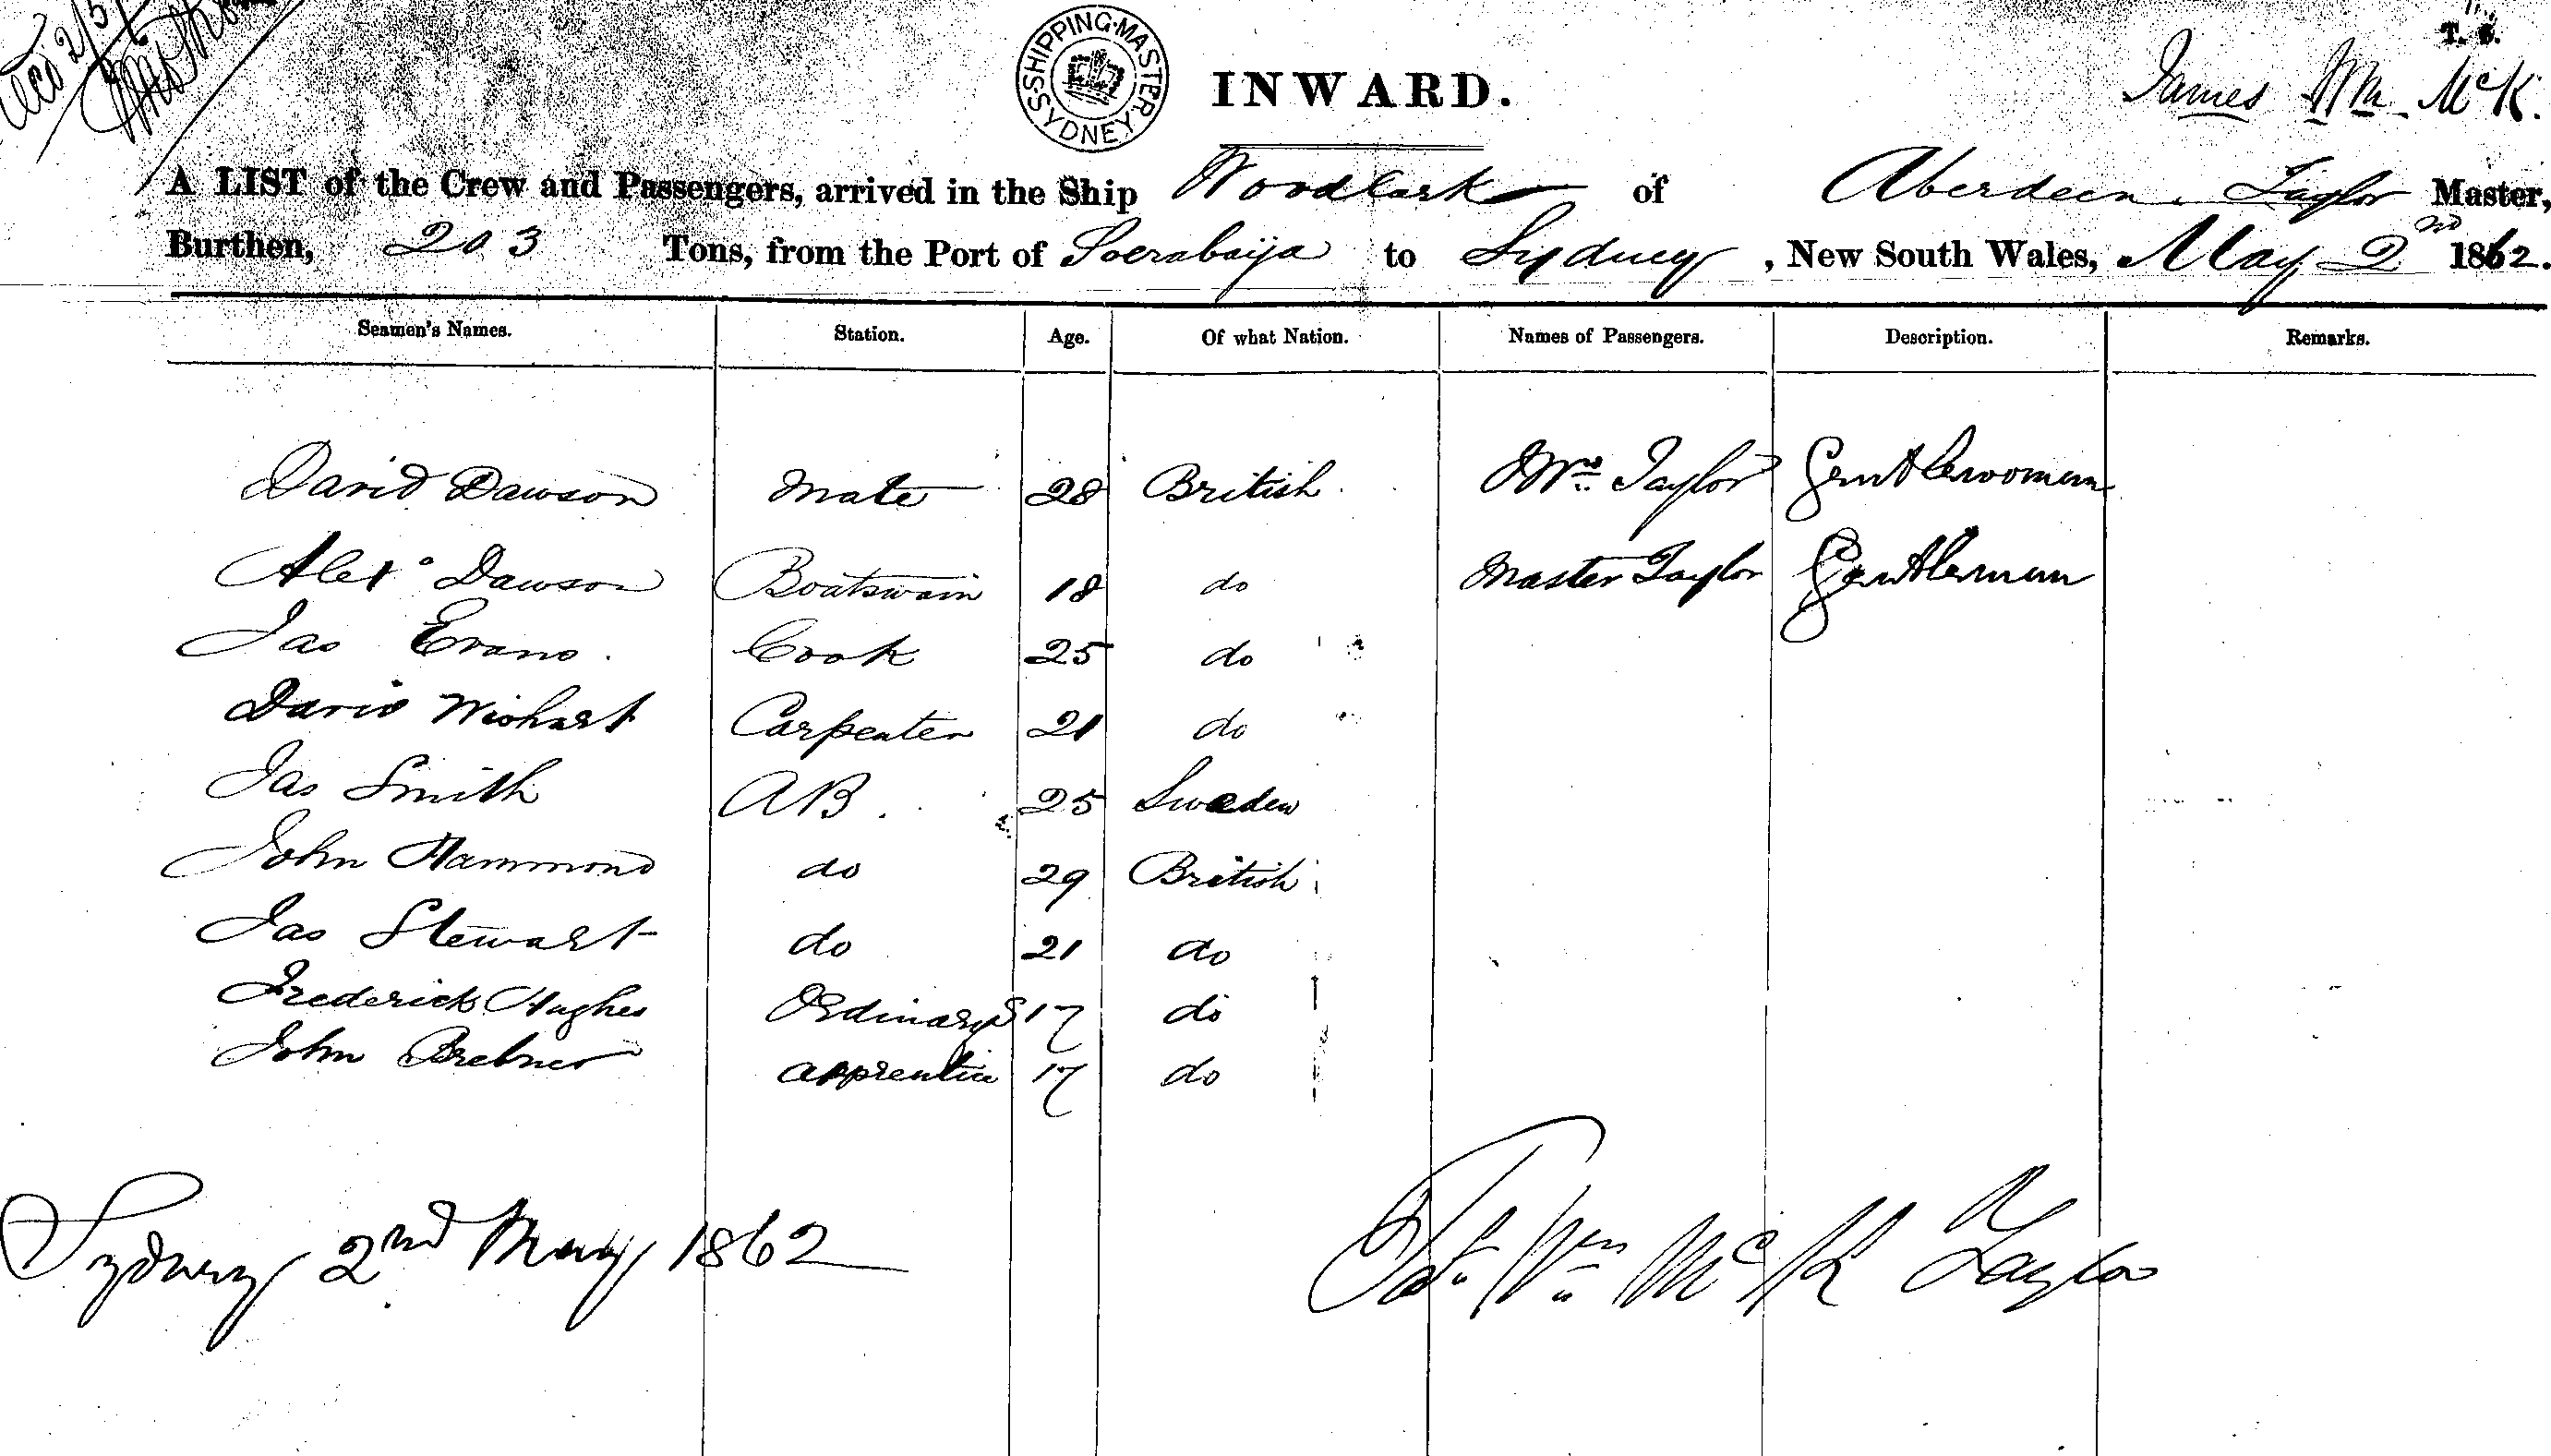 SHIPPING·MASTER
SYDNEY
INWARD.
T. S.
James Wm McK.
A LIST of the Crew and Passengers, arrived in the Ship Woodlark of Aberdeen. Taylor Master,
Burthen, 203 Tons, from the Port of Soerabaija to Sydney, New South Wales, May 2nd 1862.
Seamen's Names. Station. Age. Of what Nation. Names of Passengers. Description. Remarks.
David Dawson Mate 28 British Mrs Taylor Gentlewoman
Alexr Dawson Boatswain 18 do Master Taylor Gentleman
Jas Evans. Cook 25 do
David Wishart Carpenter 21 do
Jas Smith AB. 25 Sweden
John Hammond do 29 British
Jas Stewart do 21 do
Frederick Hughes Ordinary S 17 do
John Brebner apprentice 17 do
Sydney 2nd May 1862
Wm McK Taylor